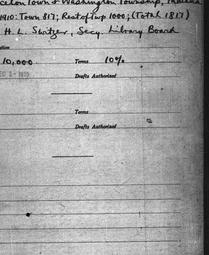 celon Town & Washington Township, Indiana
1910: Town 817; Rest of Twp 1000; (Total 1817)
H. L. Shatzer, Secy. Library Board
10,000 Terms 10%
Drafts Authorized
Terms
Drafts Authorized